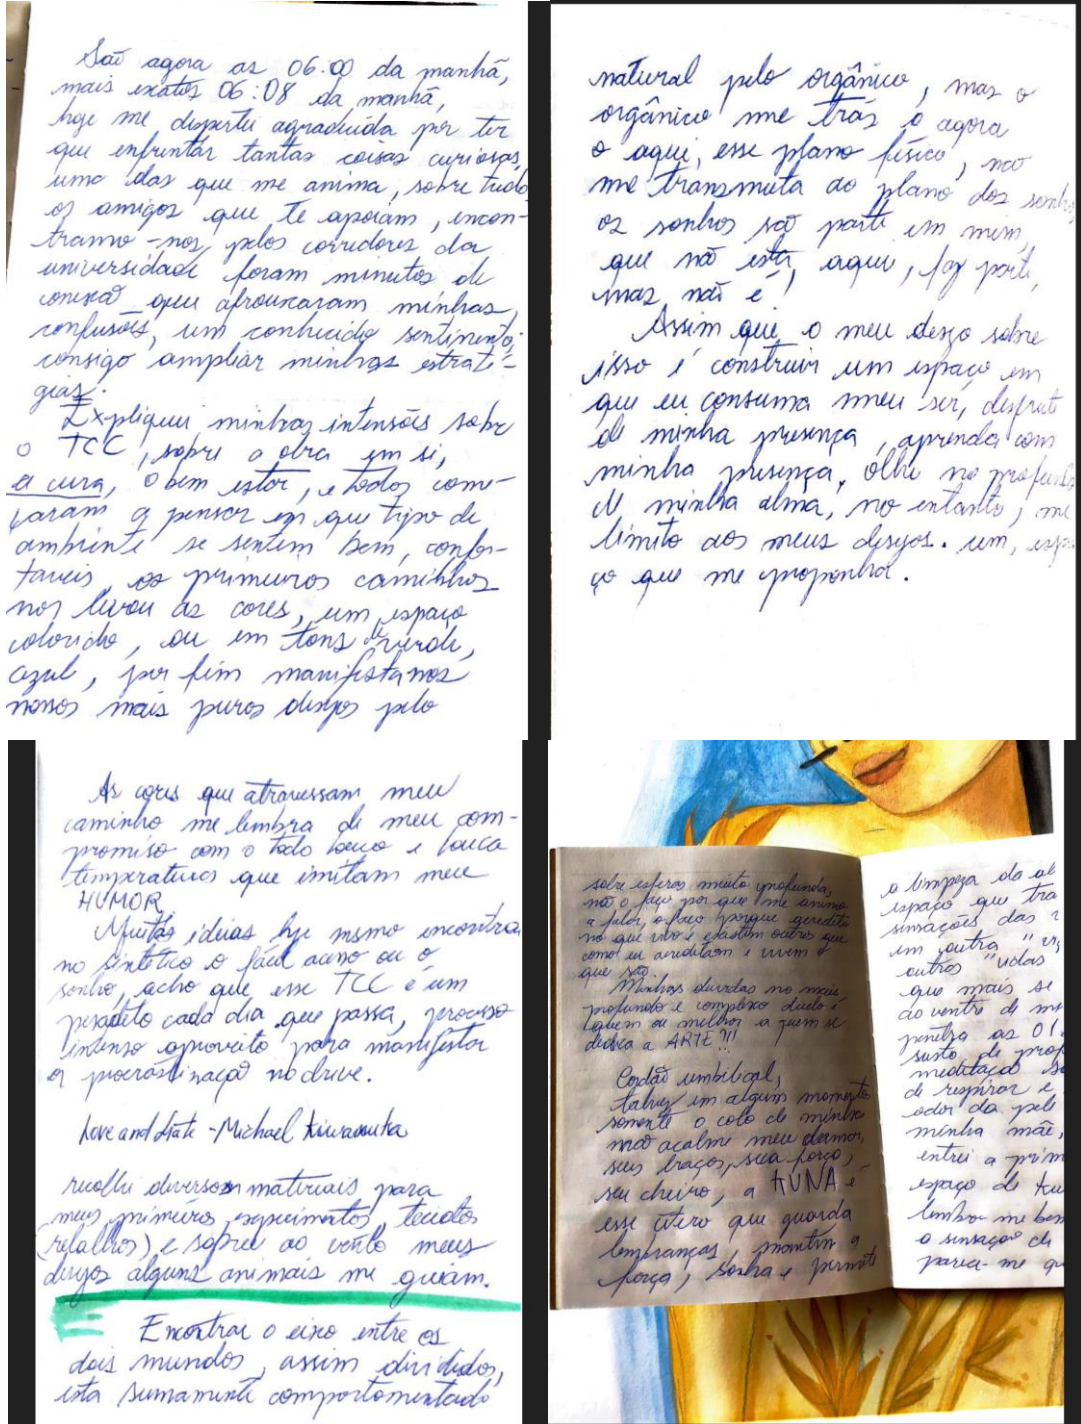 São agora as 06:00 da manhã,
mais exatos 06:08 da manhã,
hoje me dispertei agradecida por ter
que enfrentar tantas coisas curiosas,
uma das que me anima, sobre tudo
os amigos que te apoiam, encon-
tramo-nos, pelos corredores da
universidade foram minutos de
conexão que afrouxaram minhas
confusões, um conhecido sentimento,
consigo ampliar minhas estraté-
gias.
Expliquei minhas intensões sobre
o TCC, sobre a obra em si,
a cura, o bem estar, e todos come-
çaram a pensar em que tipo de
ambiente se sentem bem, confor-
taveis, os primeiros caminhos
nos levou às cores, um espaço
colorido, ou em tons de verde,
azul, por fim manifestamos
nossos mais puros desejos pelo
natural pelo orgânico, mas o
orgânico me trás o agora
o aqui, esse plano físico, não
me transmuta ao plano dos sonhos
os sonhos são parte em mim,
que não está, aqui, faz parte,
mas não é!
Assim que, o meu desejo sobre
isso é construir um espaço em
que eu consuma meu ser, desfrute
de minha presença, aprenda com
minha presença, olhe no profundo
de minha alma, no entanto, me
limito aos meus desejos. um, espa
ço que me proponha.
As cores que atravessam meu
caminho me lembra de meu com-
promiso com o todo louco e louca
temperaturas que imitam meu
HUMOR
Muitas ideias hje mesmo encontra
no sintético o fácil aceso ou o
sonho, acho que esse TCC é um
pesadelo cada dia que passa, processo
intenso aproveito para manifestar
a procrastinação no drive.
Love and Hate - Michael Kiwanuka
recolhi diversos materiais para
meus primeiros experimentos, tecidos
(retalhos) e soprei ao vento meus
desejos alguns animais me guiam.
Encontrar o eixo entre os
dois mundos, assim divididos,
esta sumamente comportamentado
sobre esferas muito profunda,
não o faço por que me anima
a falar, o faço porque acredito
no que vivo e existem outros que
como eu acreditam e vivem o
que são.
Minhas duvidas no mais
profundo e complexo duelo é
quem ou melhor a quem se
dedica a ARTE?!!
Cordão umbilical,
talvez em algum momento
somente o colo de minha
mãe acalme meu
seus braços, sua força,
seu cheiro, a TUNA é
esse útero que guarda
lembranças, mantém a
força, sonha e permite
a limpeza da al
espaço que tra
sensações das
em outra "vi
outros "vidas
que mais se
ao ventre de m
penetra as 01.
susto de prof
meditação so
de respirar e
odor da pele
minha mãe,
entrei a prim
espaço de tu
lembro me bem
a sensação de
parecia-me qu